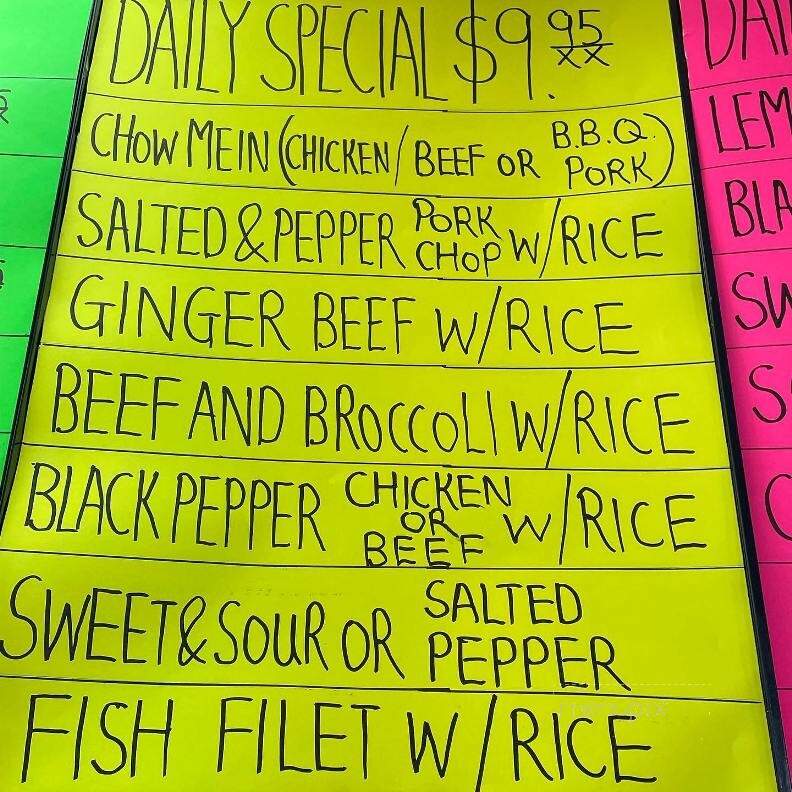 DAILY SPECIAL $9.95
xx
CHOW MEIN (CHICKEN/BEEF OR B.B.Q. PORK)
SALTED & PEPPER PORK CHOP W/RICE
GINGER BEEF W/RICE
BEEF AND BROCCOLI W/RICE
BLACK PEPPER CHICKEN OR BEEF W/RICE
SWEET & SOUR OR SALTED PEPPER
FISH FILET W/RICE
DAI
LEM
BLA
SW